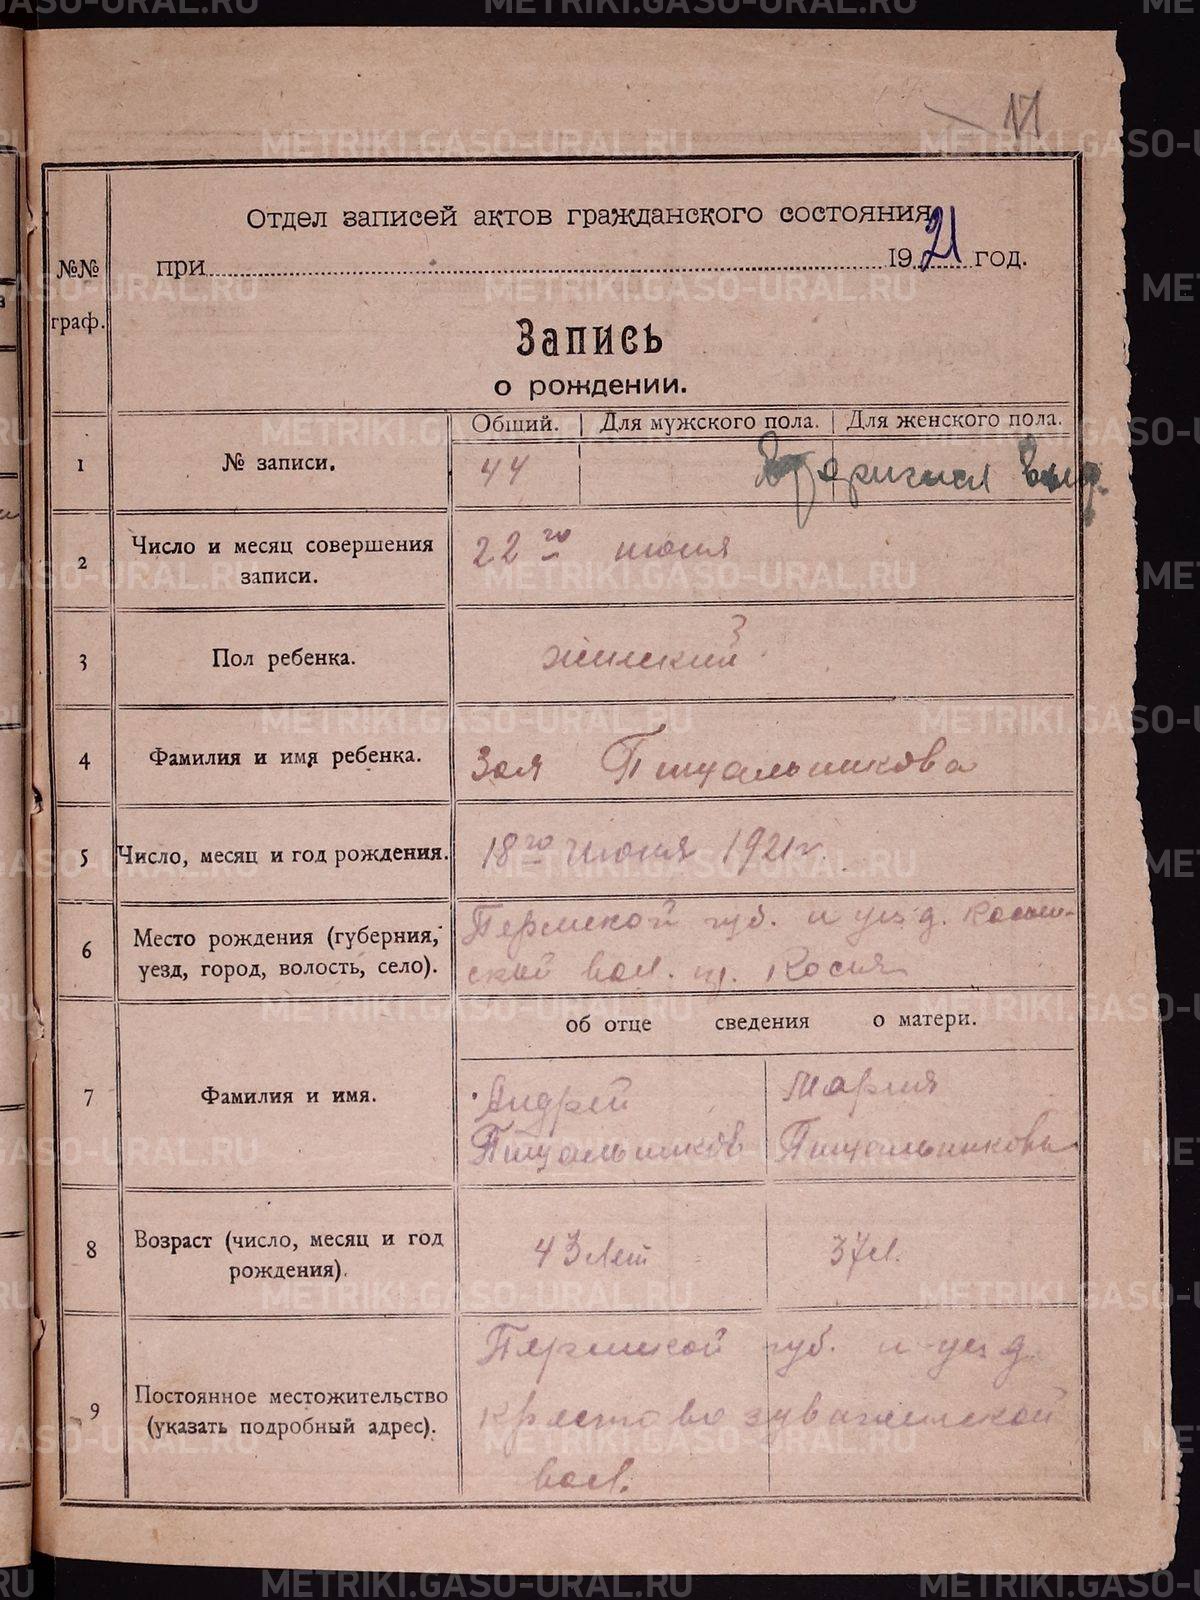 17
Отдел записей актов гражданского состояния
при 1921 год.
№№ граф.
Запись
о рождении.
Общий. Для мужского пола. Для женского пола.
1 № записи. 44
2 Число и месяц совершения записи. 22го июня
3 Пол ребенка. женский 3
4 Фамилия и имя ребенка. Зоя Пищальникова
5 Число, месяц и год рождения. 18го июня 1921г.
6 Место рождения (губерния, уезд, город, волость, село). Пермской губ. и уезд.
вол.
об отце сведения о матери.
7 Фамилия и имя. Андрей Мария
Пищальников Пищальникова
8 Возраст (число, месяц и год рождения). 43 лет 37 л.
9 Постоянное местожительство (указать подробный адрес). Пермской губ. и уезд
Крестовоздвиженской
вол.
METRIKI.GASO-URAL.RU